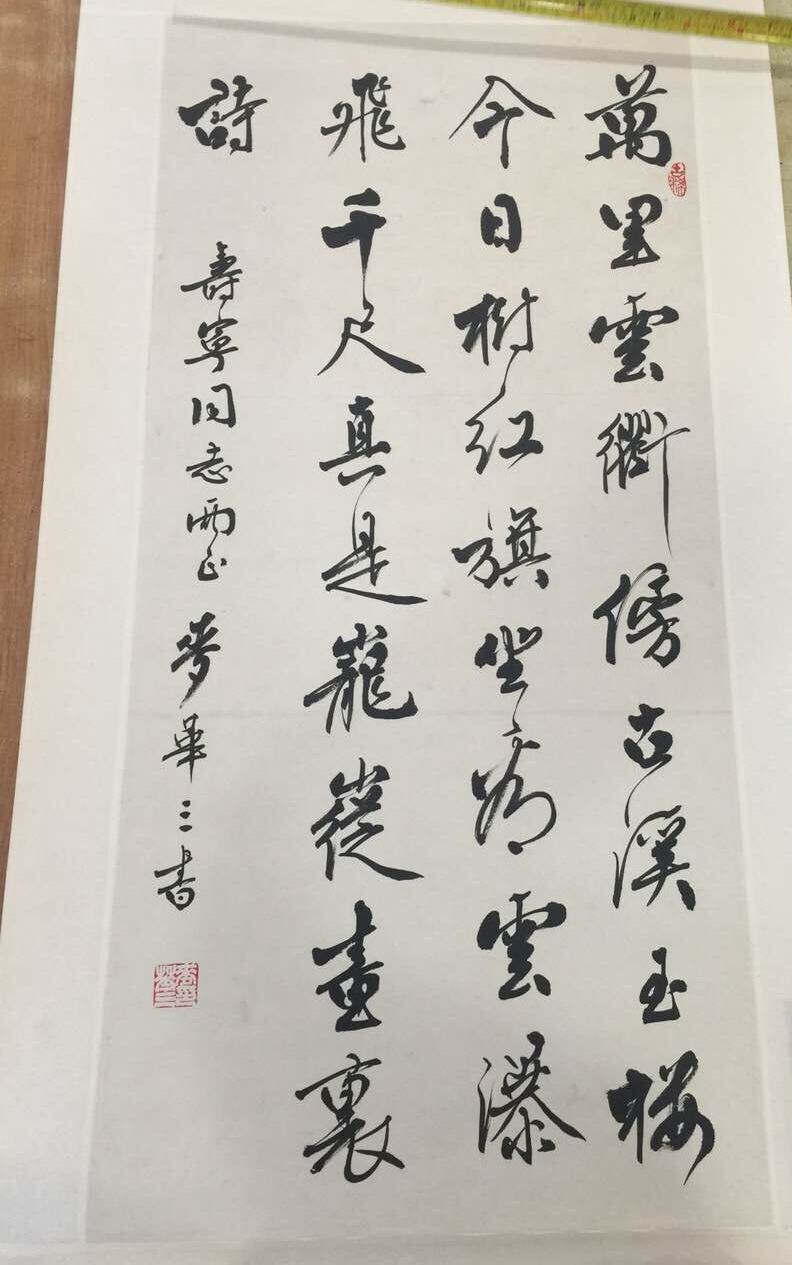 萬里雲衢傍古溪玉樓
今日樹紅旗坐看雲瀑
飛千尺真是巃嵷畫裏
詩
壽寧同志兩正 麥華三書